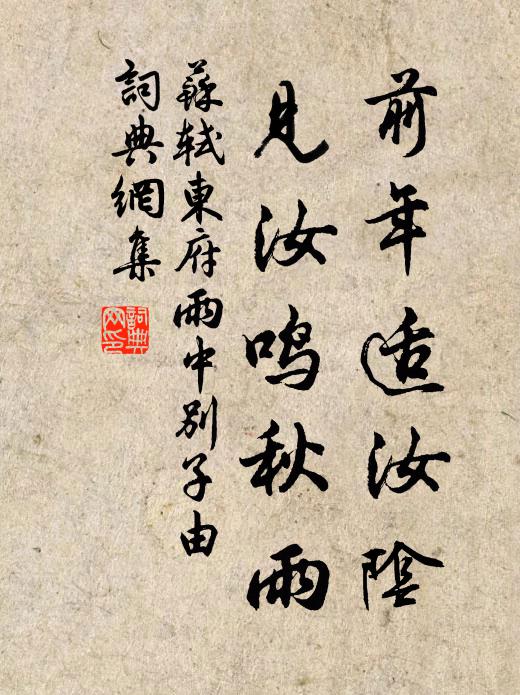 前年适汝陰
見汝鳴秋雨
蘇軾東府雨中別子由
詞典網集
詞典網印